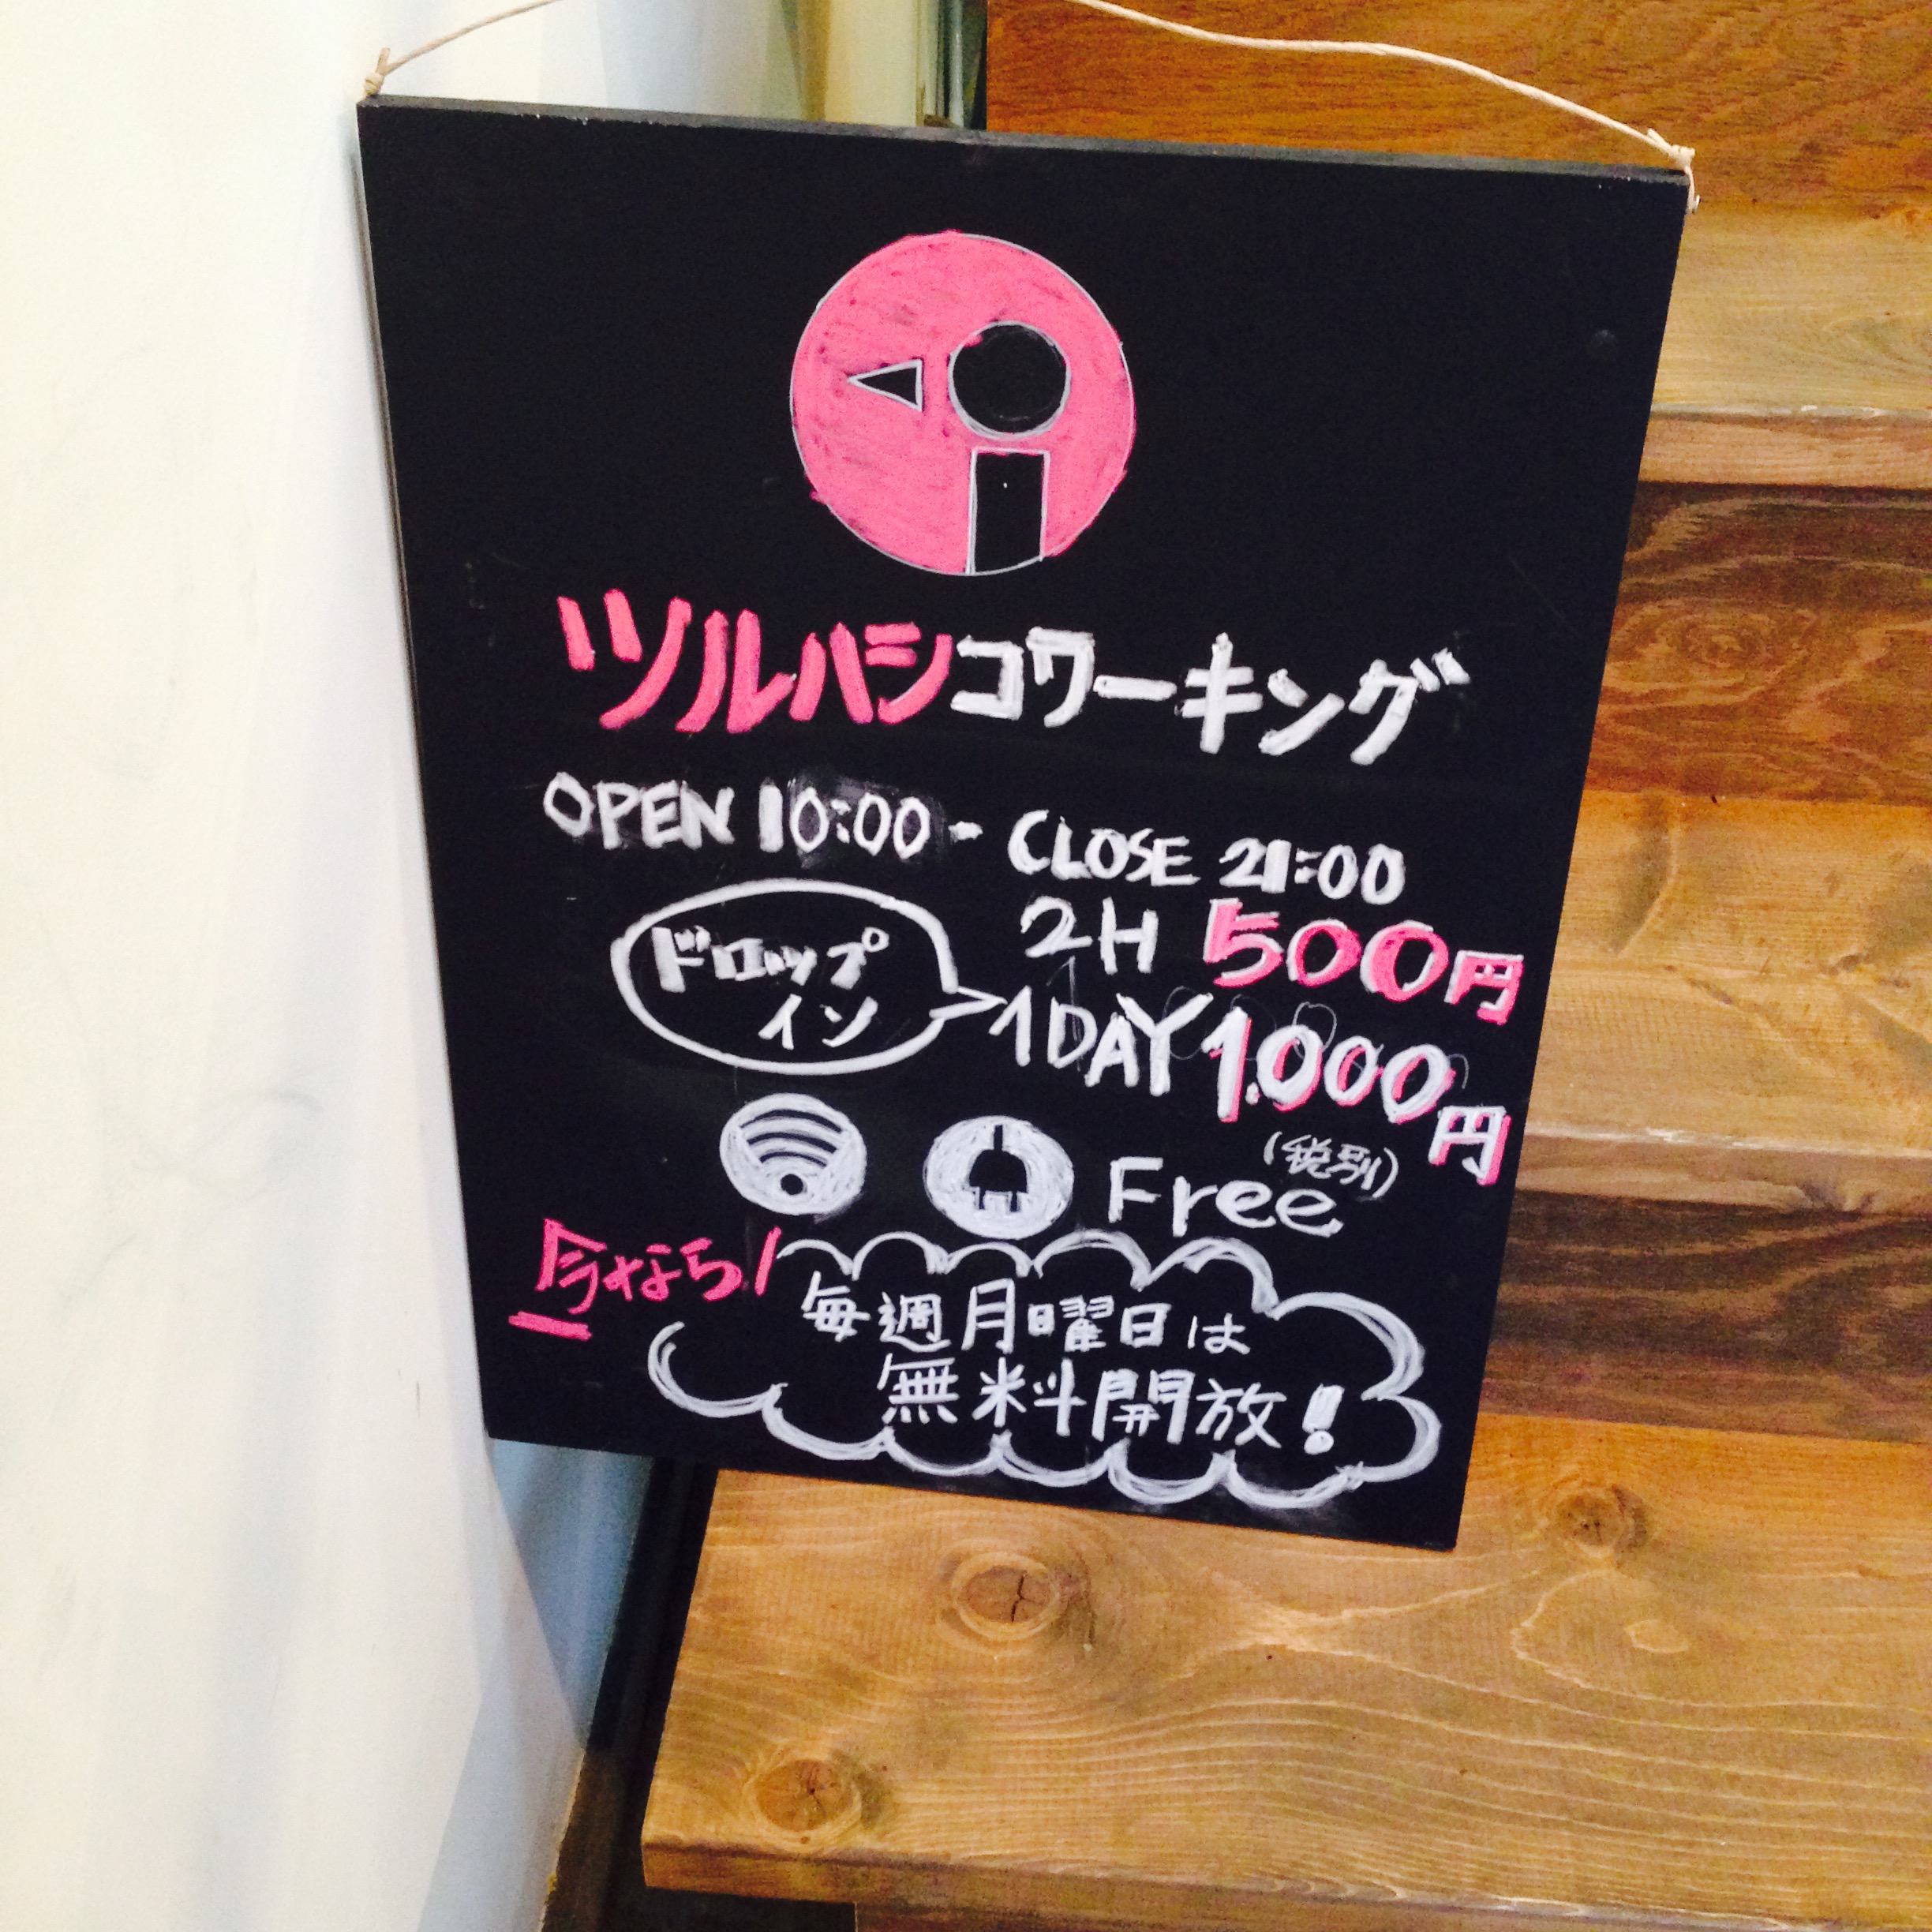 ツルハシコワーキング
OPEN 10:00 - CLOSE 21:00
ドロップ
イン
2H 500円
1DAY 1.000円
(税別)
Free
今なら!
毎週月曜日は
無料開放!